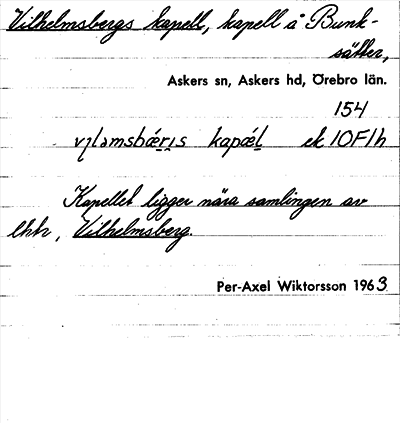 Vilhelmsbergs kapell, kapell å Bunk-
sätter,
Askers sn, Askers hd, Örebro län.
154
vɩləmsbǽrɩs kapǽl ek 10F1h
Kapellet ligger nära samlingen av
lhhr, Vilhelmsberg.
Per-Axel Wiktorsson 1963